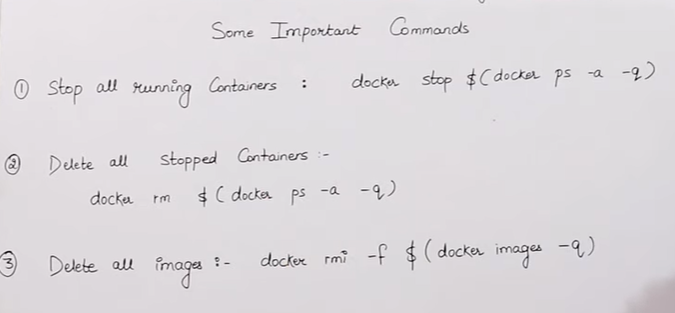 Some Important Commands
① Stop all running Containers : docker stop $(docker ps -a -q)
② Delete all Stopped Containers :-
docker rm $(docker ps -a -q)
③ Delete all images :- docker rmi -f $(docker images -q)